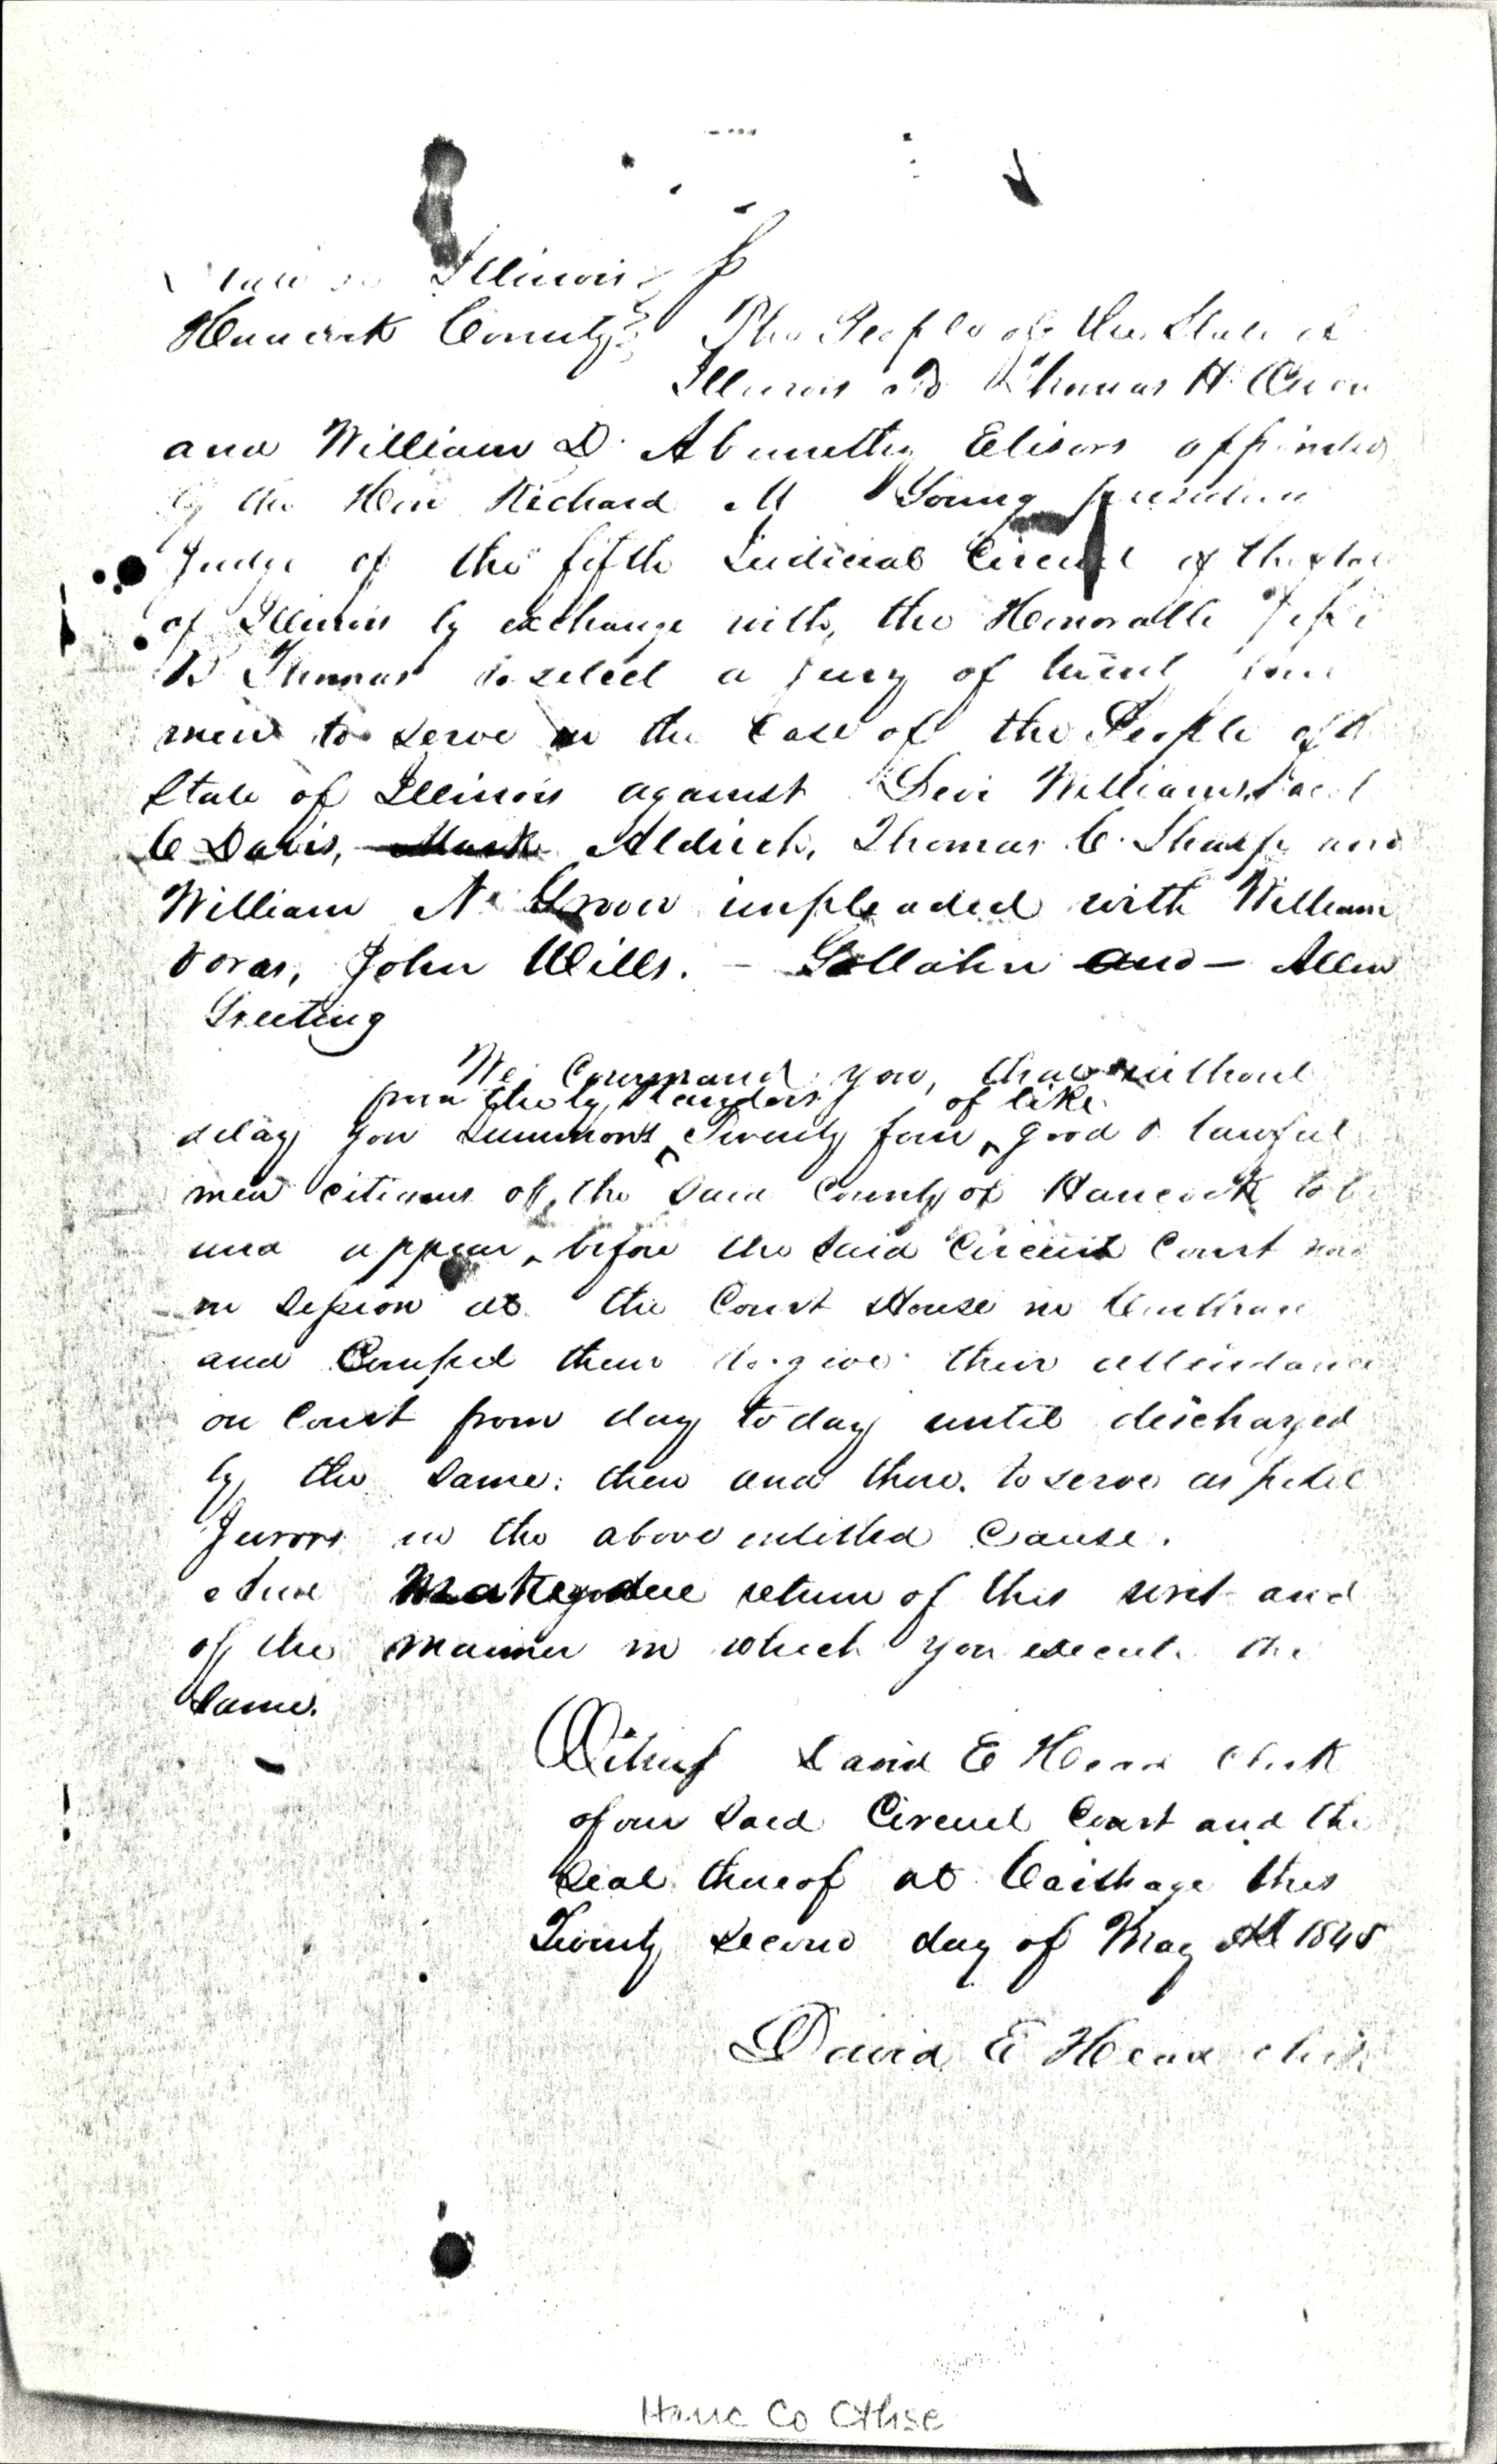 State of Illinois
Hancock County The People of the State of
Illinois to Thomas H Owen
and William D. Abernethy Elisors appointed
by the Hon Richard M Young presiding
Judge of the fifth Judicial Circuit of the State
of Illinois by exchange with, the Honorable Jesse
B Thomas to select a jury of twenty four
men to serve in the Case of the People of the
State of Illinois against Levi Williams, Jacob
C Davis, Mark Aldrich, Thomas C. Sharp and
William N. Grover impleaded with William
Voras, John Wills. - Gallaher and - Allen
Greeting
We Command you, that without
from the by standers of like
delay you summons Twenty four good & lawful
men citizens of the said County of Hancock to be
and appear, before the said Circuit Court now
in Session at the Court House in Carthage
and Compel them to give their attendance
on Court from day to day until discharged
by the same: then and there. to serve as petit
Jurors in the above entitled Cause.
And make due return of this writ and
of the manner in which you execute the
same.
Witness David E Head Clerk
of our said Circuit Court and the
seal thereof at Carthage this
Twenty second day of May AD 1845
David E Head clerk
Hanc Co CtHse